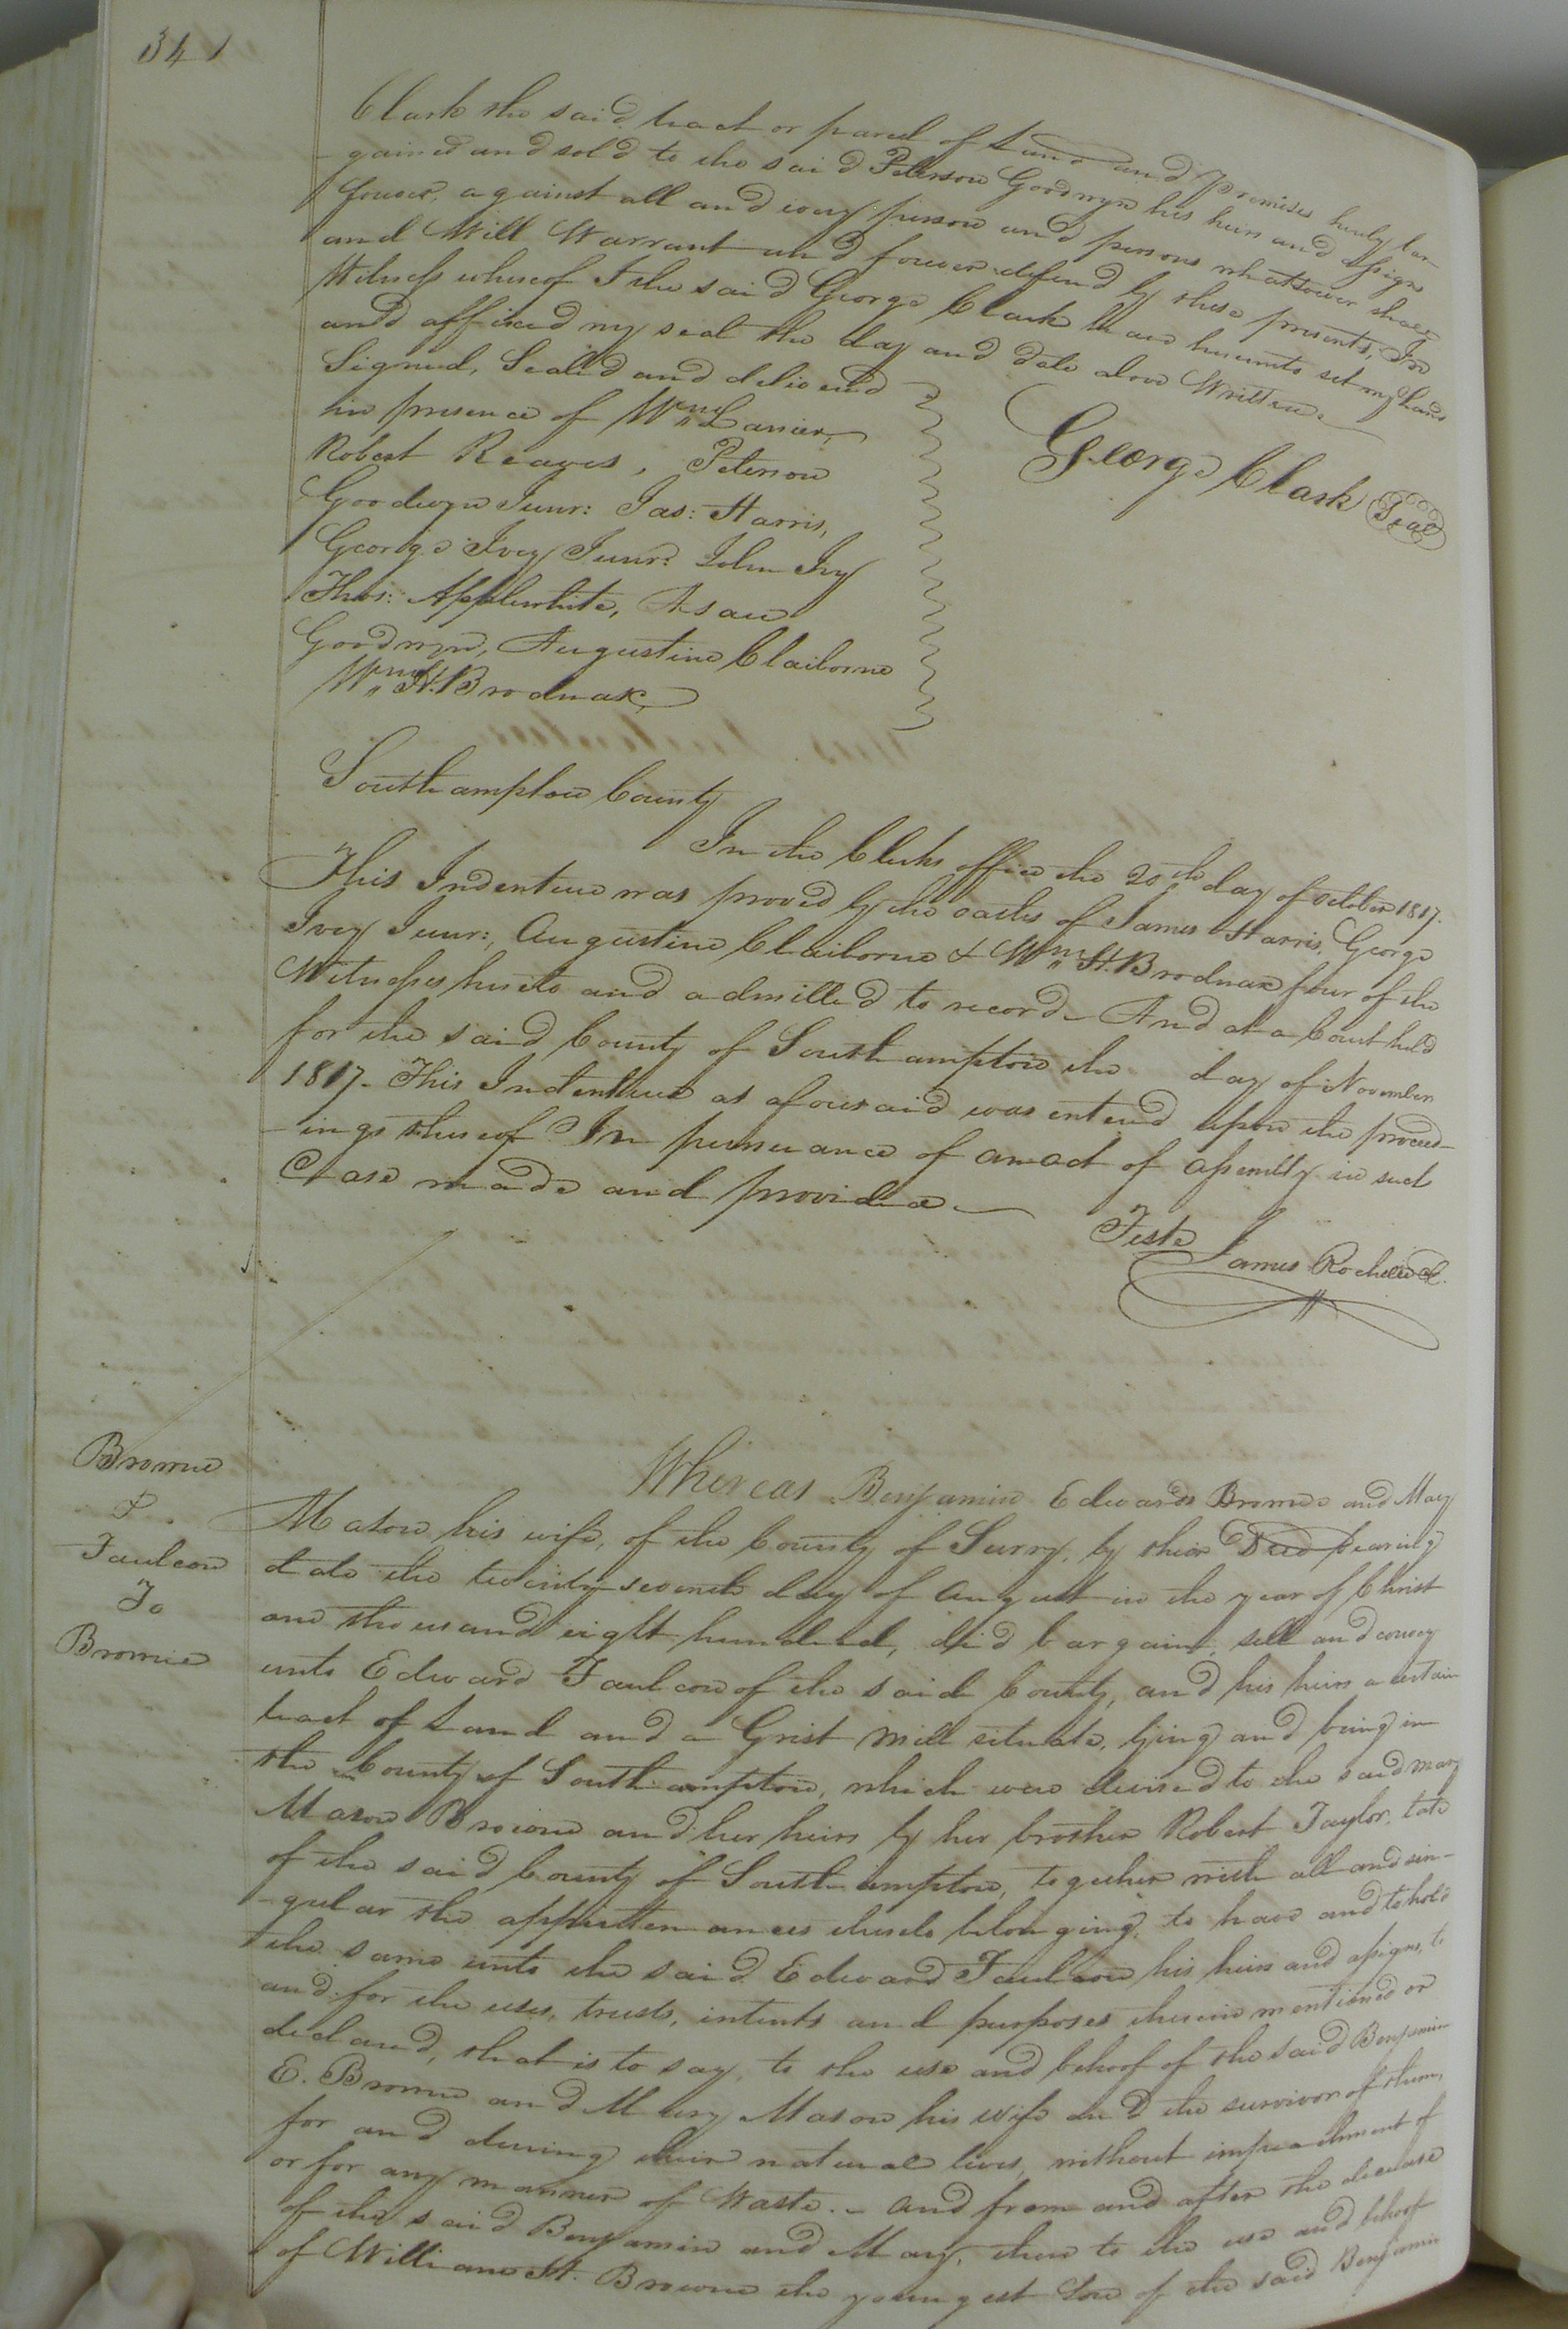 341
Clark the said tract or parcel of Land and Premises hereby bar-
-gained and sold to the said Peterson Goodwyn his heirs and assigns
forever, against all and every person and persons whatsoever shall
and Will Warrant and forever defend by these presents, In
Witness whereof I the said George Clark have hereunto set my hand
and affixed my seal the day and date above Written.
Signed, Sealed and delivered
in presence of Wm Lanier,
Robert Reaves, Peterson
Goodwyn Junr: Jas: Harris,
George Ivey Junr: John Ivy
Thos: Applewhite, Esau
Goodwyn, Augustine Claiborne
Wm H. Brodnax,
George Clark Seal
Southampton County
In the Clerks office the 20th day of October 1817.
This Indenture was proved by the oaths of James Harris, George
Ivey Junr:, Augustine Claiborne & Wm H. Brodnax four of the
Witnesses hereto and admitted to record - And at a Court held
for the said County of Southampton the day of November
1817. This Indenture as aforesaid was entered upon the proceed-
-ings thereof In pursuance of an act of assembly in such
Case made and provided
Teste
James Rochelle Cl.
Browne
&
Faulcon
To
Browne
Whereas Benjamin Edwards Browne and Mary
Mason his wife, of the County of Surry, by their Deed bearing
date the twenty seventh day of August in the year of Christ
one thousand eight hundred, did bargain, sell and convey
unto Edward Faulcon of the said County, and his heirs a certain
tract of Land and a Grist Mill situate, lying and being in
the County of Southampton, which were devised to the said mary
Mason Browne and her heirs by her brother Robert Taylor, late
of the said County of Southampton, together with all and sin-
-gular the appurtenances thereto belonging, to have and to hold
the same unto the said Edward Faulcon his heirs and assigns, to
and for the uses, trusts, intents and purposes therein mentioned or
declared, that is to say, to the use and behoof of the said Benjamin
E. Browne and Mary Mason his wife and the survivor of them,
for and during their natural lives, without impeachment of
or for any manner of Waste. - and from and after the decease
of the said Benjamin and Mary, then to the use and behoof
of William H. Browne the youngest Son of the said Benjamin